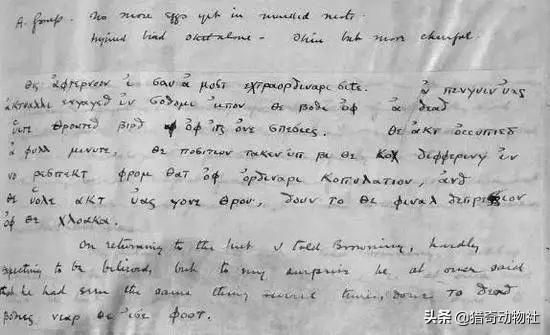 A. Group. No more eggs yet in nests.
Injured bird alone - thin but more cheerful.
θις ἀφτερνοον ἰ σαυ ἀ μοστ εχτραορδιναρι σιτε. ἀ πενγυιν ὑας
ἀκτυαλλι ενγαγεδ ἰν σοδομι ὐπον θε βοδι ὀφ ἀ δεαδ
ὑιτε θροατεδ βιρδ ὀφ ἰτς ὀνε σπεσιες. θε ἀκτ ὀccυπιεδ
ἀ φυλλ μινυτε, θε ποσιτιον τακεν ὐπ βι θε κοχ διφφερινγ ἰν
νο ρεσπεκτ φρομ θατ ὀφ ὀρδιναρι κοπυλατιον, ἀνδ
θε ὑολε ακτ ὑας γονε θρου, δουν το θε φιναλ δεπρεσσιον
ὀφ θε χλοακα.
On returning to the hut I told Browning, hardly
expecting to be believed, but to my surprise he at once said
that he had seen the same thing several times, done το δεαδ
βοδιες νεαρ θε φοοτ.
头条 @猎奇动物社